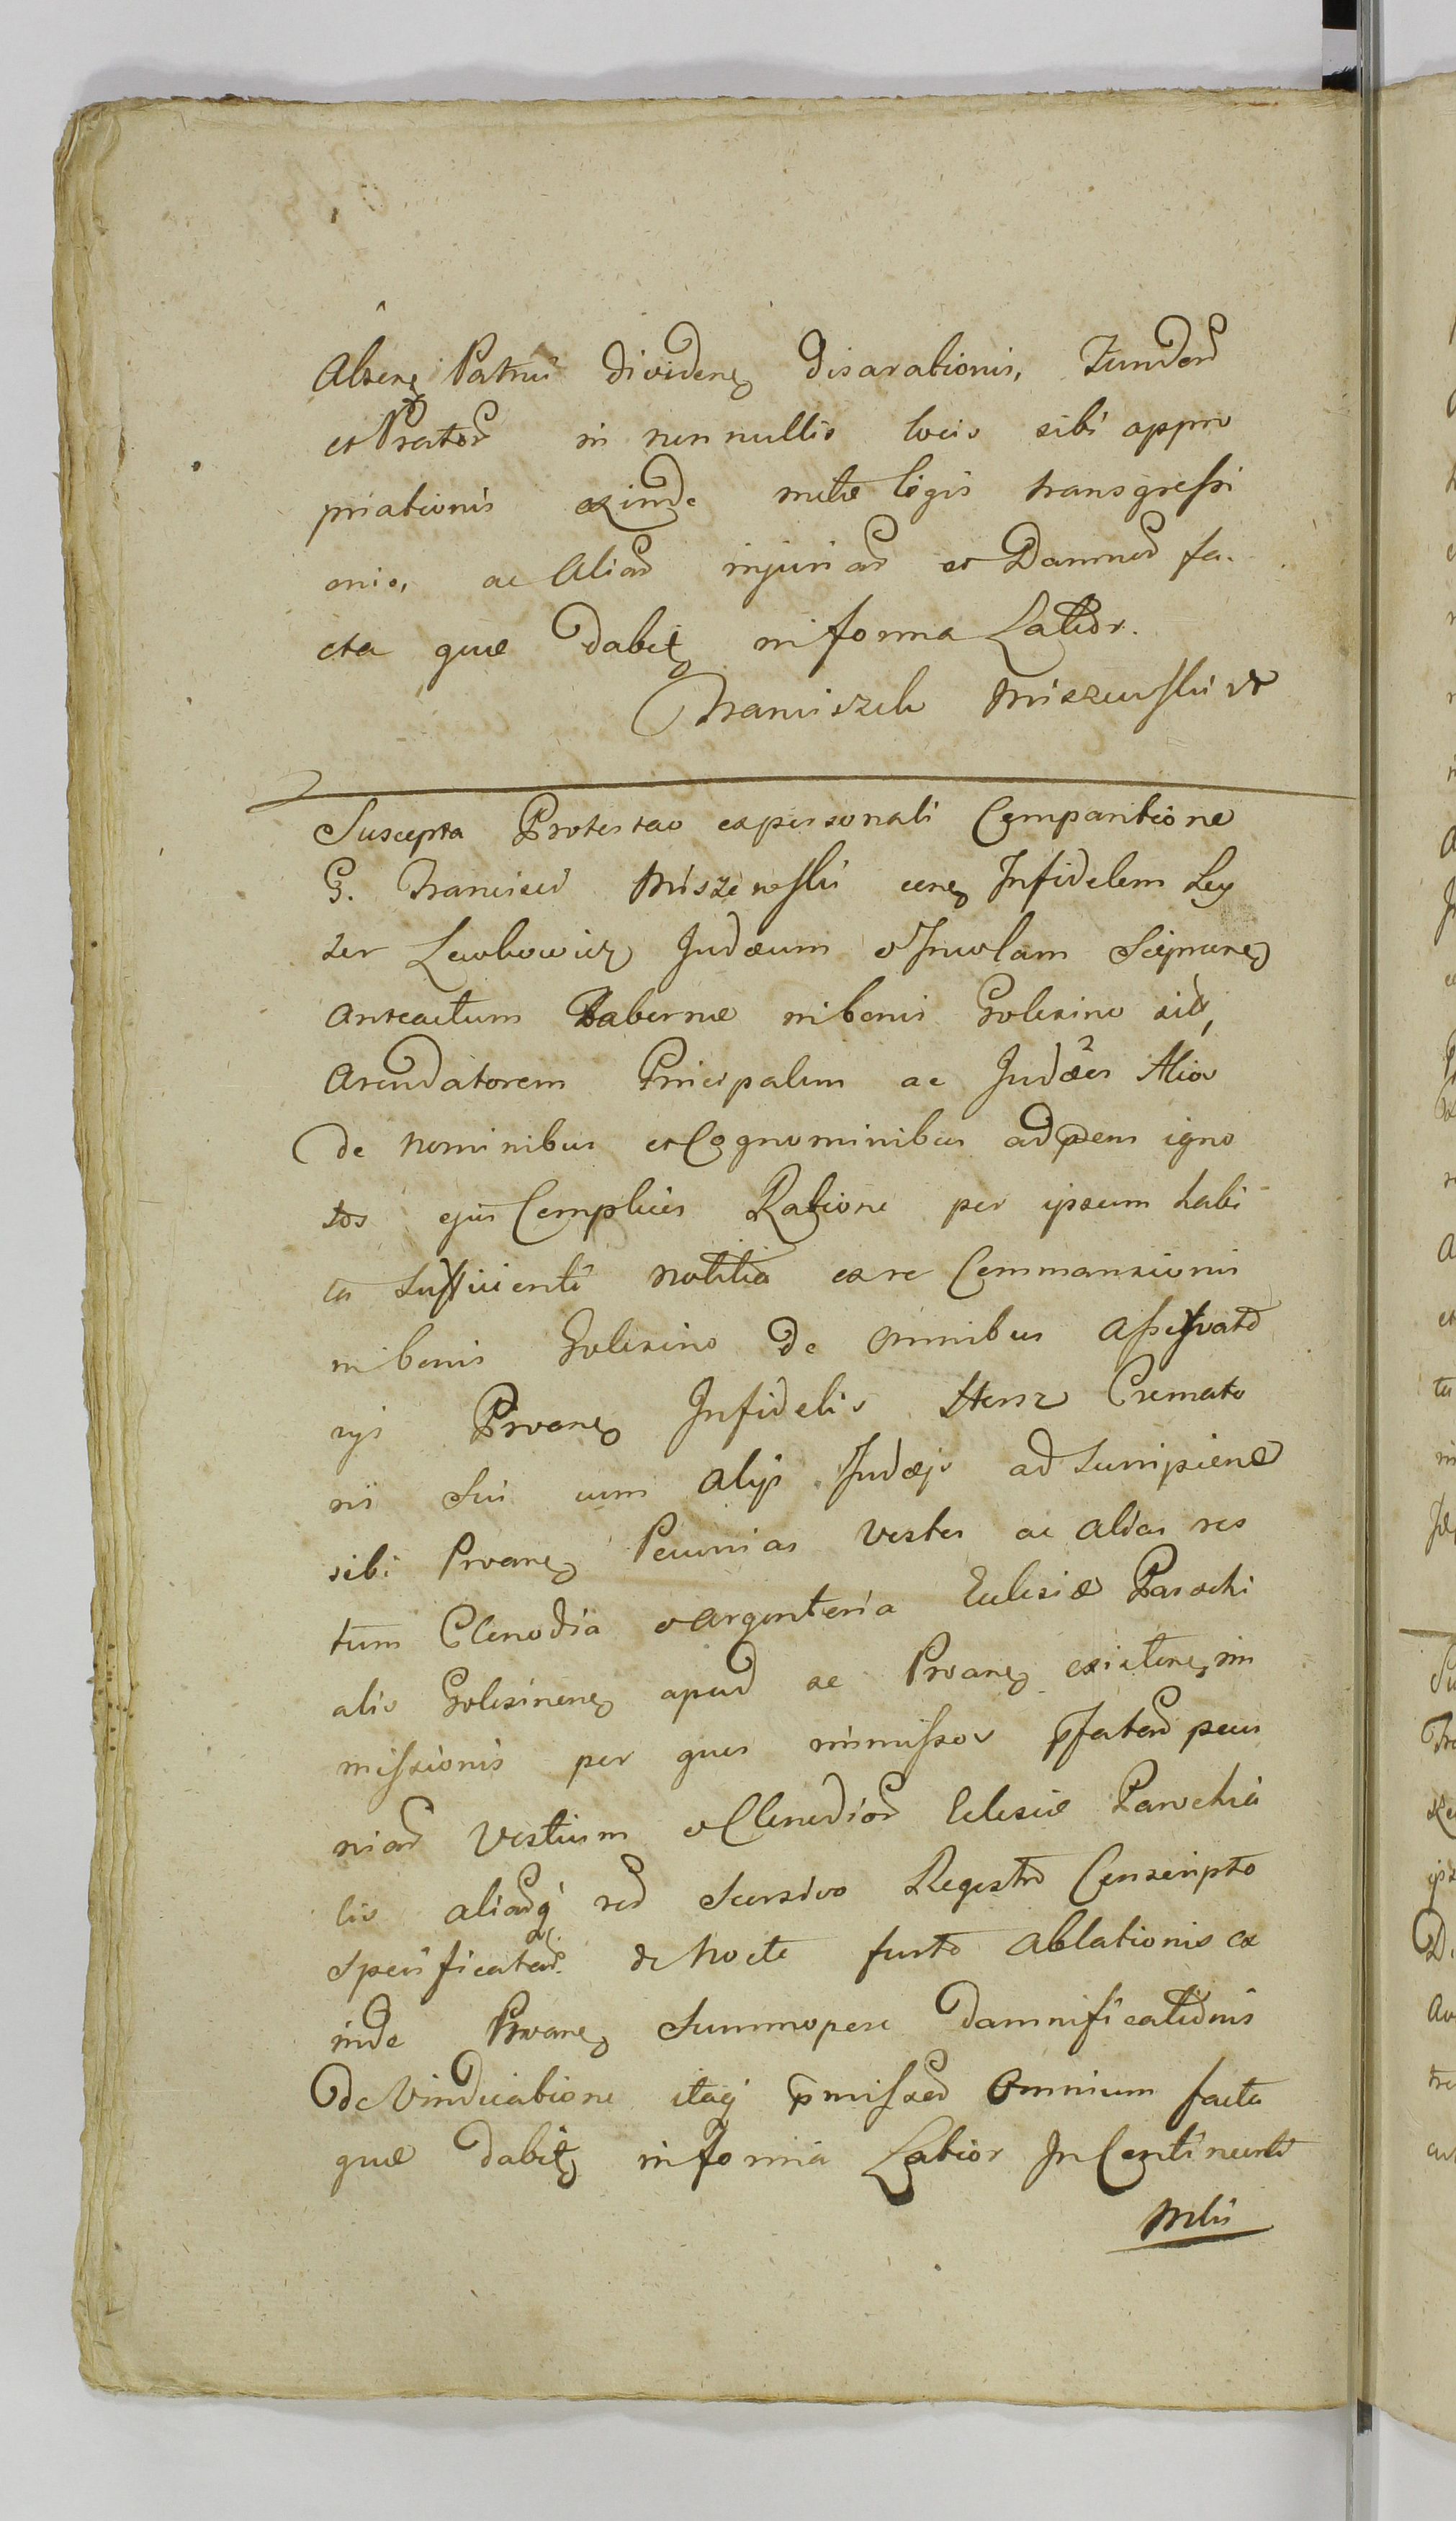 Absene Patrui dividene disarationis, Fundor
et Prator in non nullis locis sibi appro
priationis exinde metæ legis transgressi
onis, ac Aliar injuriar et Damnor fa.
cta quæ dabit in forma Latior.
Franciszek Miszewski
Suscepta Protestao ex personali Comparitione
G. Francisci Miszewski Infidelem Ley
zer Lewkowicz Judæum et Incolam
anteactum Tabernæ in bonis Golesino
Arendatorem Principalem ac Judæos Alios
de nominibus et Cognominibus ad pens igno
tos ejus Complices Ratione per ipsum habi
ta sufficienti notitia ex re Commansionis
in bonis Golesino de omnibus
Proane Infidelis Hersz Cremato
ris sui cum alijs Judæis ad Surripiend
sibi Proane Pecunias vestes ac alias res
tum Clenodia et argenteria Eclesiæ Parochi
alis Golesinene apud se Proane existene im
missionis per quos immissos pfatar pecu
niar Vestium et Clenodior Eclesiæ Parochia
lis aliarq rer Seorsivo Regestro Conscripto
specificatar. de Nocte furto Ablationis ex
inde Proane Summopere damnificationis
de Vindicatione itaq pmissor Omnium facta
quæ dabit in forma Latior In Continenti